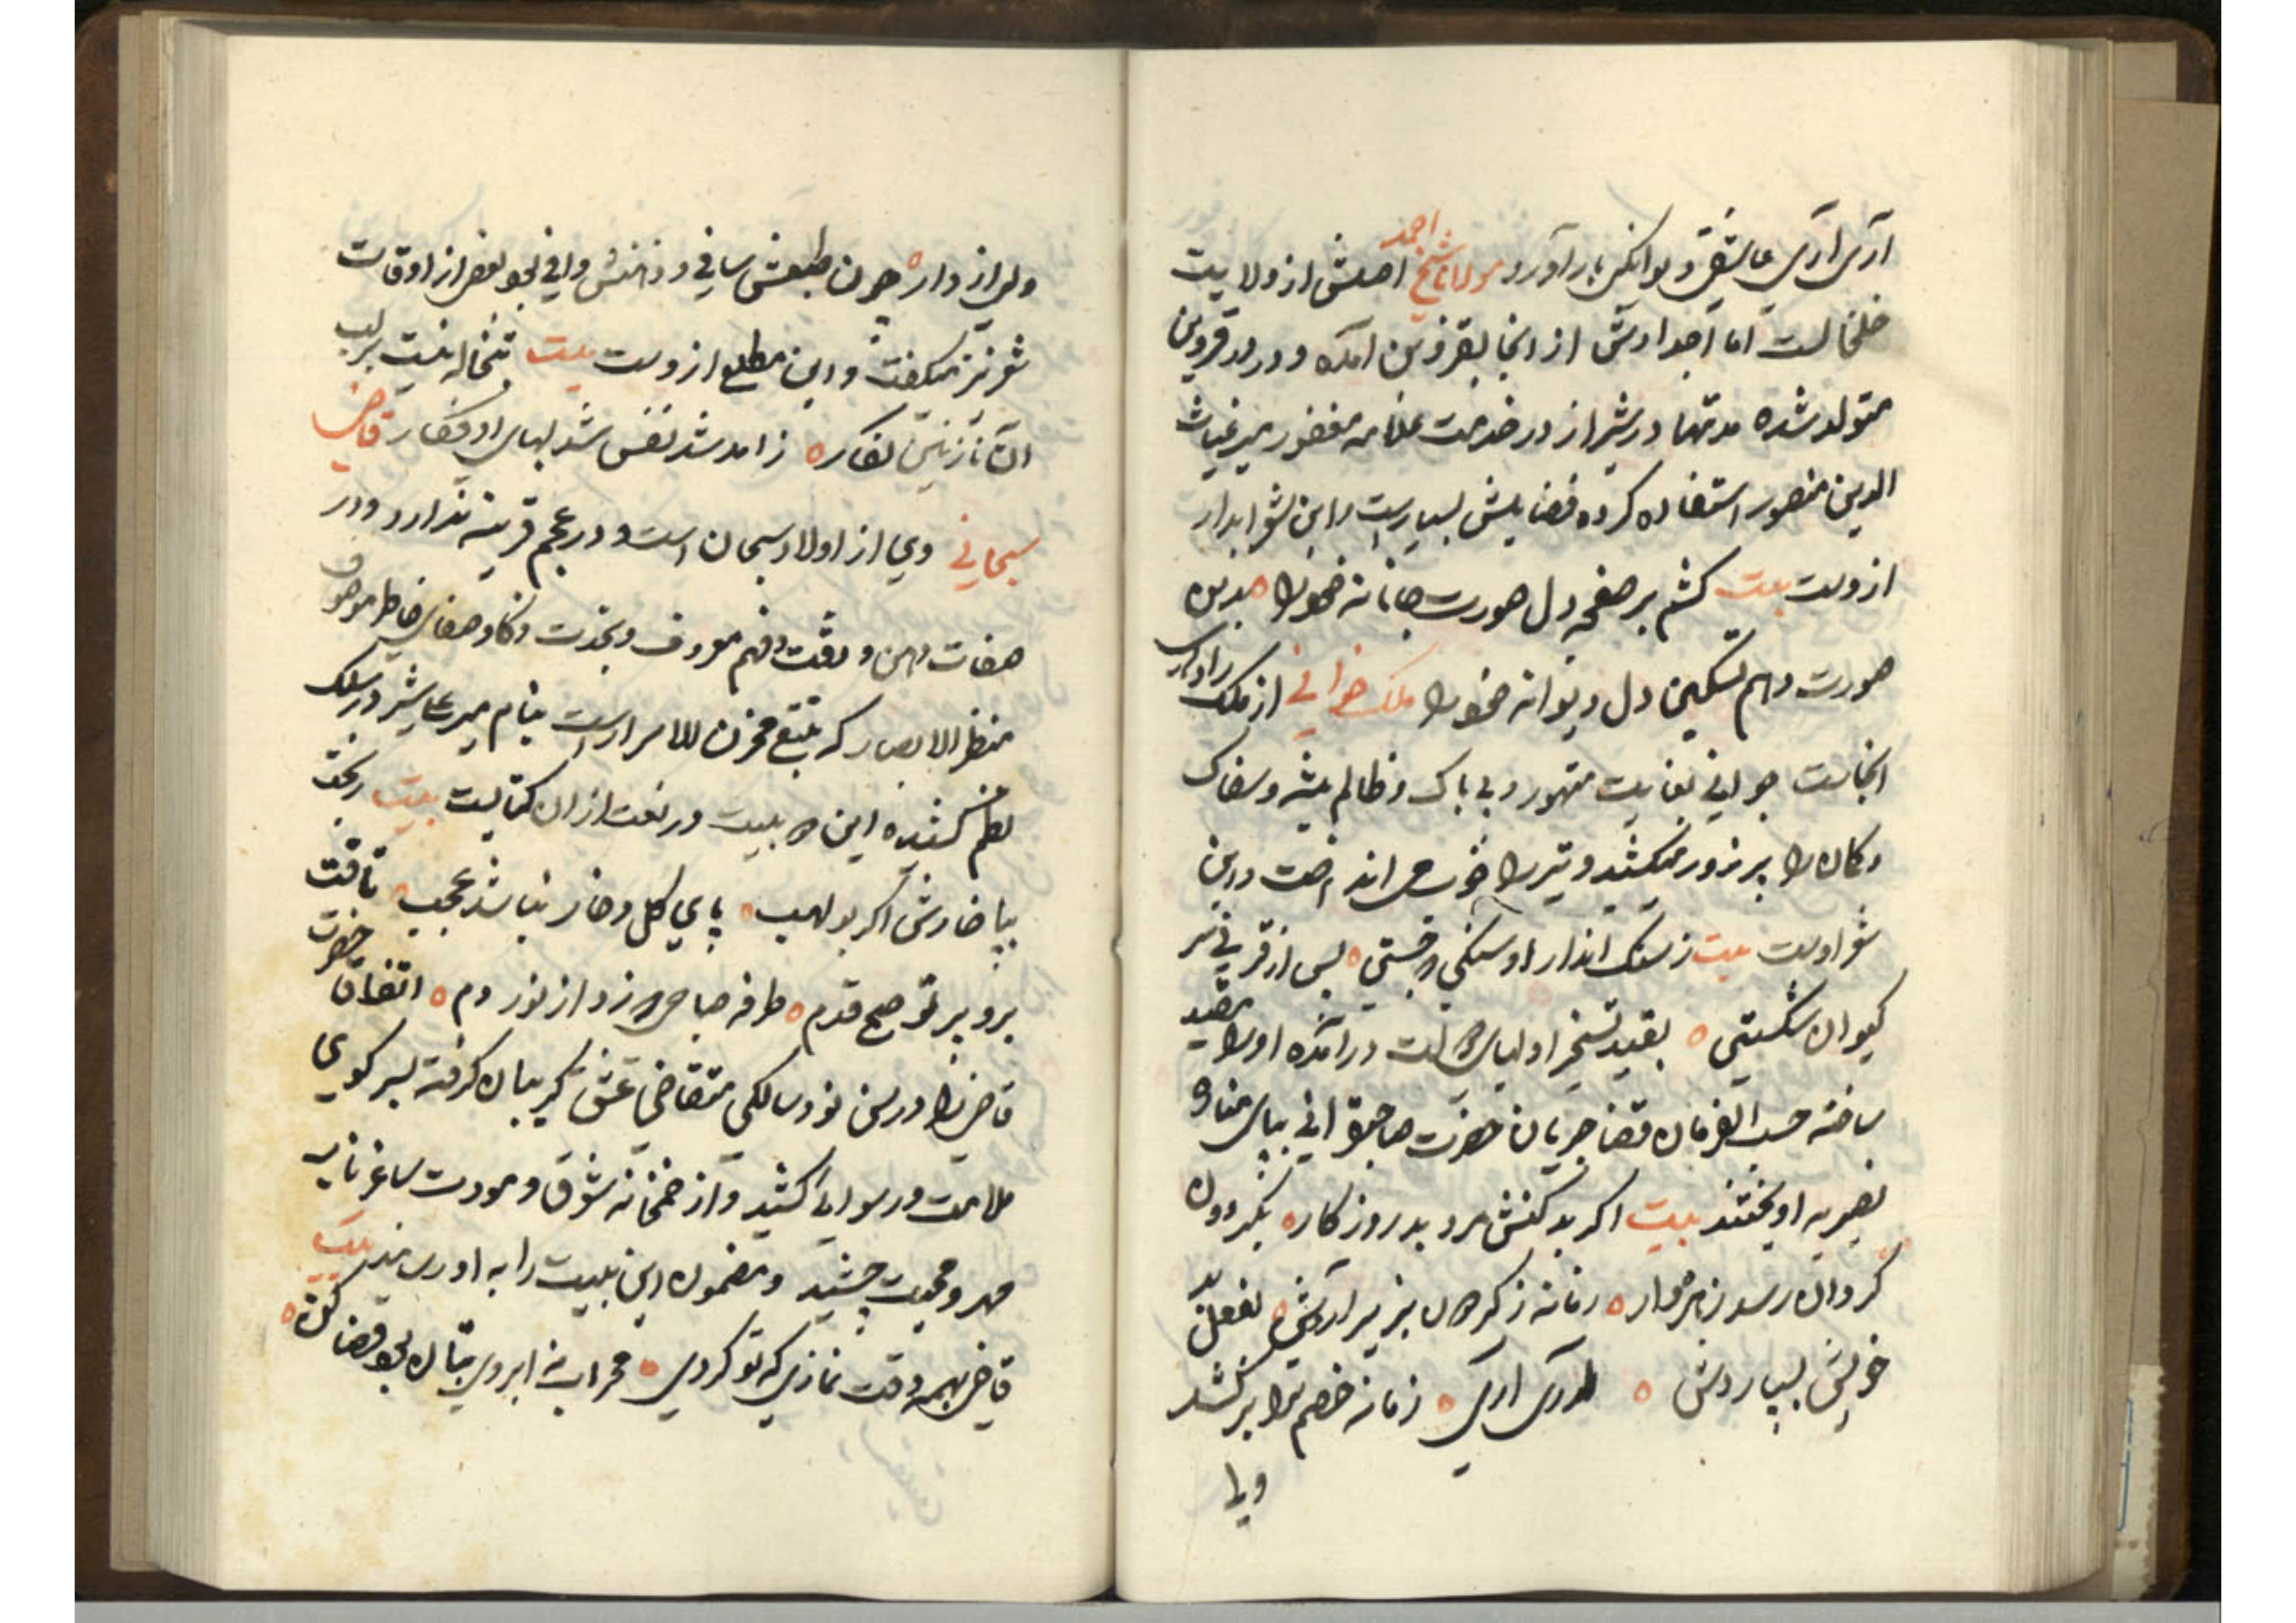 آری آری عاشقی دیوانگی بار آورد مولانا شیخ احمد اصلش از ولایت
خلخالست اما اجدادش از انجا بقزوین آمده و در قزوین
متولد شده مدتها در شیراز در خدمت علامه مغفور میر غیاث
الدین منصور استفاده کرده فضایلش بسیارست و این شعر ابدار
ازوست بیت کشم بر صفحه دل صورت جانانه خود را بدین
صورت دهم تسکین دل دیوانه خود را ملک از ملک زادهای
انجاست جوانی بغایت متهور و بی باک و ظالم پیشه و سفاک
و کمان را پر زور میکشید و تیر را خوب می انداخت و این
شعر اوست بیت ز سنک انداز او سنکی که جستی پس از قرنی سر
کیوان شکستی بقید تسخیر اولیای در آمده او را مقید
ساخته حسب الفرمان قضا جریان حضرت صاحبقرانی بپای مناره
نصیریه اویختند بیت اکر بد کنش مرد بد روزکار بگردون
گردان رسد زمانه ز بزیر آردش بفعل بد
خویش بسپاردش آری آری زمانه خصم ترا بر کشد
ولی
ولی از دار چون طبعش سافی و ذهنش وافی بود بعضی از اوقات
شعر نیز میکفت و این مطلع ازوست بیت تبخاله نیست بر لب
آن نازنین نکار زاهد شد نفس شد لبهای او فکار قاضی
سبحانی وی از اولاد سبحان است و در عجم قرینه ندارد و در
صفات ذهن و دقت و فهم معروف و بحدت ذکا و صفای خاطر موصوف
منظر الابصار که تتبع مخزن الاسرارست بنام میر علیشیر در سلک
نظم کشیده این دو بیت در نعت از ان کتابست بیت ریخت
بپا خارش اکر بو لهب پای کل و خار نباشد عجب تافت
برو پرتو صبح قدم طرفه صباحی که زد از نور دم اتفاقا حضرت
قاضی را در سن نود سالکی متقاضی عشق کریبان گرفته بسر کوی
ملامت و رسوایی کشید و از خمخانه شوق و مودت ساغر ناب
مهر و محبت چشید و مضمون این بیت را به او رسانید بیت
قاضی بهمه وقت نمازی که تو کردی محراب به ابروی بتان بود قضا کن